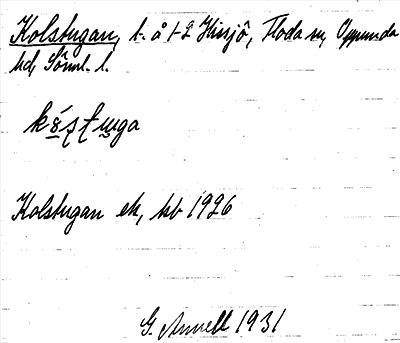 Kolstugan, t. å 1-2 Hinsjö, Floda sn, Oppunda
hd, Söml. l.
Kolstugan ek, kb 1926
G. Annell 1931